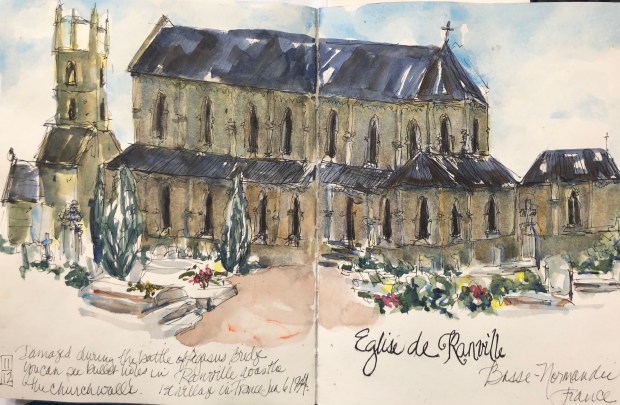 Damaged during the battle of Pegasus Bridge
you can see bullet holes in
the church walls.
Ranville was the
1st village in France Jun 6 1944.
Eglise de Ranville
Basse-Normandie
France